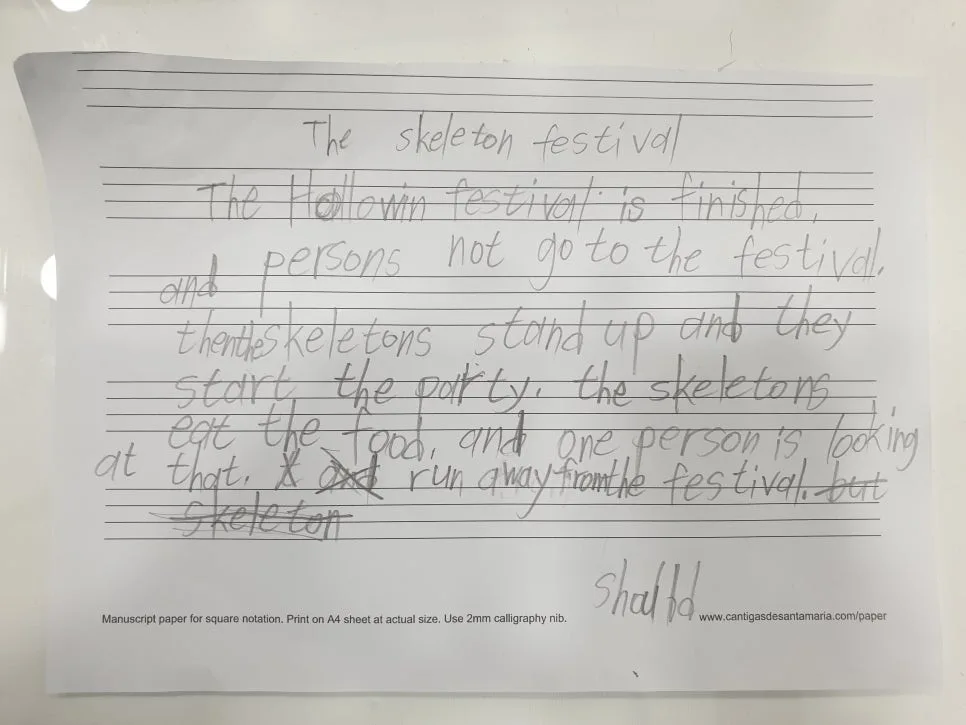 The skeleton festival
The Hallowin festival is finished,
and persons not go to the festival,
then the skeletons stand up and they
start the party. the skeletons
eat the food, and one person is looking
at that. run away from the festival. but
skeleton
Manuscript paper for square notation. Print on A4 sheet at actual size. Use 2mm calligraphy nib.
www.cantigasdesantamaria.com/paper